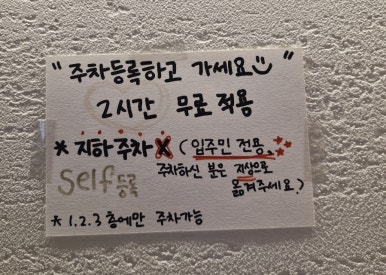 "주차등록하고 가세요"
2시간 무료 적용
* 지하주차 X (입주민 전용.
주차하신 분은 지상으로
옮겨주세요.)
Self등록
* 1.2.3 층에만 주차가능